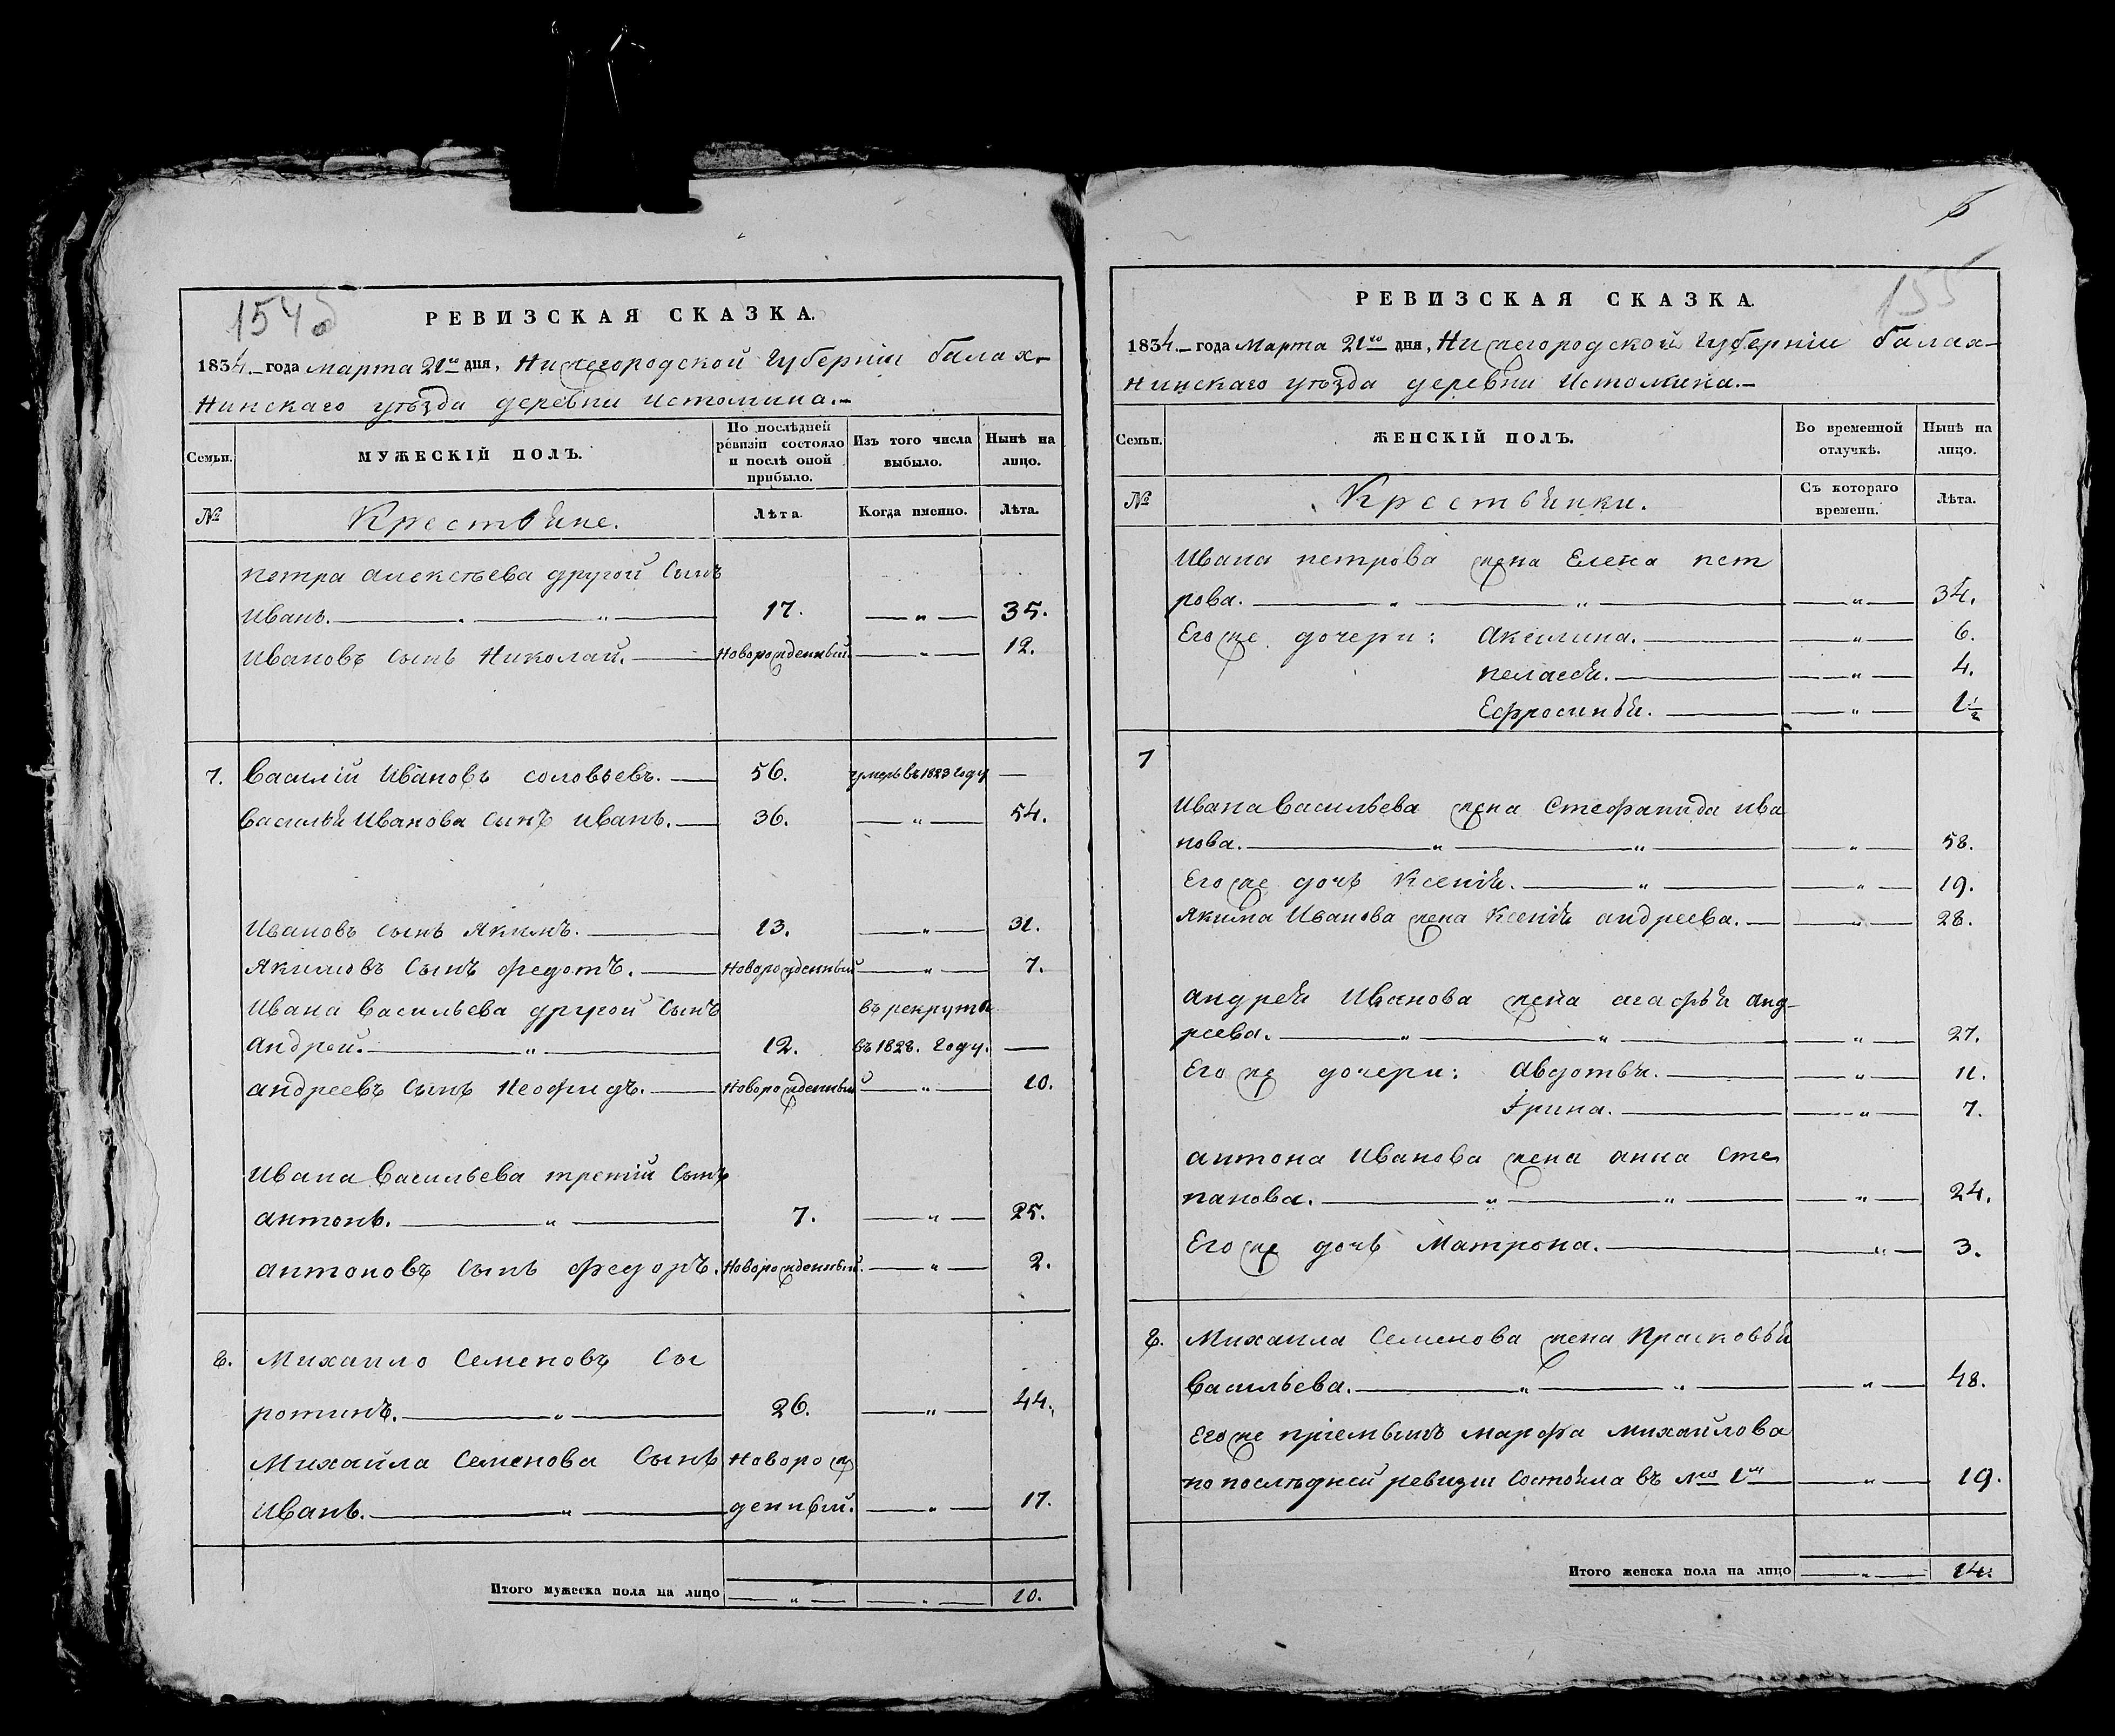 154
РЕВИЗСКАЯ СКАЗКА.
1834 года марта 21го дня, Нижегородской Губерніи балах-
нинскаго уѣзда деревни истомина.
Семьи.
МУЖЕСКІЙ ПОЛЪ.
По послѣдней ревизіи состояло и послѣ оной прибыло.
Изъ того числа выбыло.
Нынѣ на лицо.
№ Крестьяне. Лѣта. Когда именно. Лѣта.
петра алексѣева другой сынъ
иванъ. — " — 17. — " — 35.
ивановъ сынъ Николай. — Новорожденный. — " — 12.
7. Василій Ивановъ соловьевъ. — 56. умеръ въ 1823 году —
Василья Иванова сынъ иванъ. — 36. — " — 54.
Ивановъ сынъ Якимъ. — 13. — " — 31.
Якимовъ сынъ федотъ. — Новорожденный — " — 7.
Ивана Васильева другой сынъ въ рекруты
андрей. — " — 12. въ 1828. году. —
андреевъ сынъ Неофидъ. — Новорожденный — " — 10.
Ивана Васильева третій сынъ
антонъ. — " — 7. — " — 25.
антоновъ сынъ федоръ. Новорожденный. — " — 2.
8. Михаило Семеновъ Сы
ротинъ. — " — 26. — " — 44.
Михайла Семенова Сынъ Новорож
Иванъ. — " — денный. — " — 17.
Итого мужеска пола на лицо — " — — " — 10.
155
РЕВИЗСКАЯ СКАЗКА.
1834. года Марта 21го дня, Нижегородской Губерніи балах-
нинскаго уѣзда деревни Истомина.
Семьи.
ЖЕНСКІЙ ПОЛЪ.
Во временной отлучкѣ.
Нынѣ на лицо.
№ Крестьянки. Съ котораго времени. Лѣта.
Ивана петрова жена Елена пет
рова. — " — " — — " — 34.
Его же дочери: Акилина. — — " — 6.
пелагѣя. — — " — 4.
Ефросинья. — — " — 1½
7
Ивана Васильева жена Стефанида ива
нова. — " — " — — " — 58.
Его же дочь Ксенія. — " — — " — 19.
Якима Иванова жена Ксенія андреева. — — " — 28.
андрея Иванова жена агафья анд-
реева. — " — " — — " — 27.
Его же дочери: Авдотья. — — " — 11.
Ирина. — — " — 7.
антона Иванова жена анна сте
панова. — " — " — — " — 24.
Его же дочь Матрона. — — " — 3.
8. Михаила Семенова жена Прасковья
Васильева. — " — " — — " — 48.
Его же пріемышъ марфа михайлова
по послѣдней ревизіи состояла въ № 1м — — " — 19.
Итого женска пола на лицо — " — 14.